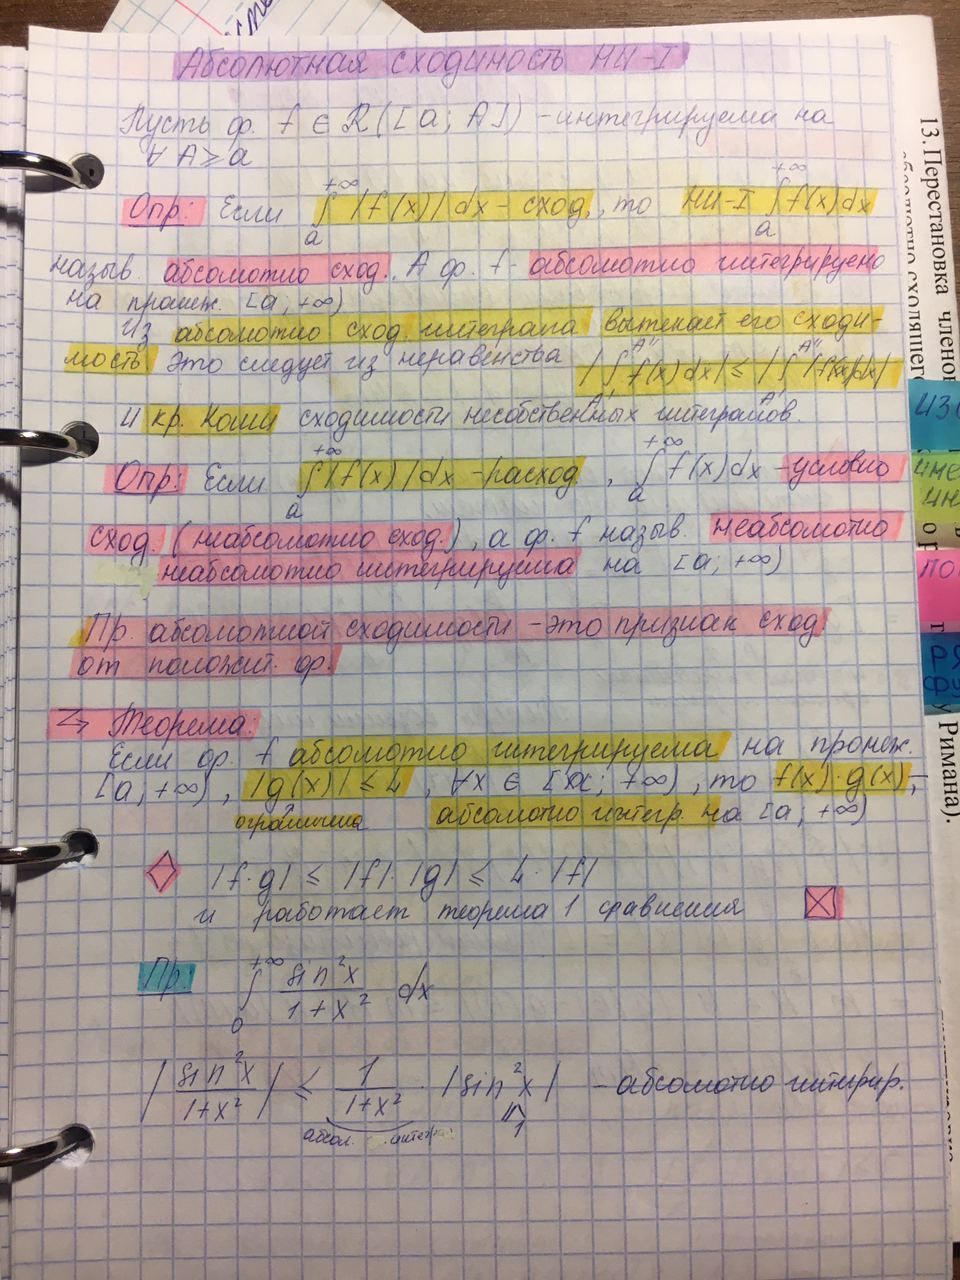 Абсолютная сходимость НИ-I
Пусть ф. f ∈ R([a; A]) - интегрируема на
∀ A ≥ a
Опр: Если ∫_a^{+∞} |f(x)| dx - сход., то НИ-I ∫_a^{+∞} f(x)dx
назыв. абсолютно сход. А ф. f - абсолютно интегрируема
на пром. [a; +∞)
Из абсолютно сход. интеграла вытекает его сходи-
мость это следует из неравенства |∫_{A'}^{A''} f(x)dx| ≤ |∫_{A'}^{A''} |f(x)|dx|
и кр. Коши сходимости несобственных интегралов.
Опр: Если ∫_a^{+∞} |f(x)| dx - расход, ∫_a^{+∞} f(x)dx - условно
сход. (неабсолютно сход.), а ф. f назыв. неабсолютно
неабсолютно интегрируема на [a; +∞)
Пр. абсолютной сходимости - это признак сход.
от положит. ф.
Теорема:
Если ф. f абсолютно интегрируема на пром.
[a; +∞), |g(x)| ≤ 4, ∀x ∈ [a; +∞), то f(x)·g(x),
ограничена абсолютно интегр. на [a; +∞)
|f·g| ≤ |f|·|g| ≤ 4·|f|
и работает теорема 1 сравнения
Пр: ∫_0^{+∞} sin²x / (1+x²) dx
|sin²x / (1+x²)| ≤ 1/(1+x²) · |sin²x| - абсолютно интегрир.
абсол. интегр. 1
13. Перестановка членов
абсолютно сходящегося
Римана).